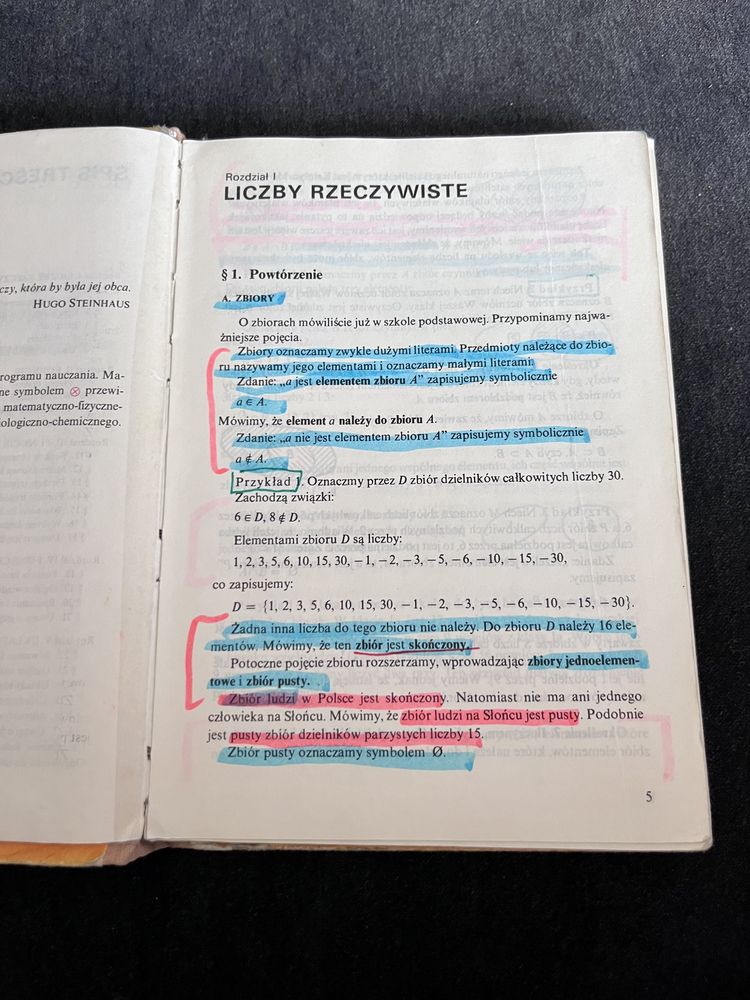 SPIS TREŚC
czy, która by była jej obca.
HUGO STEINHAUS
rogramu nauczania. Ma-
ne symbolem ⊗ przewi-
matematyczno-fizyczne-
iologiczno-chemicznego.
Rozdział I
LICZBY RZECZYWISTE
§ 1. Powtórzenie
A. ZBIORY
O zbiorach mówiliście już w szkole podstawowej. Przypominamy najwa-
żniejsze pojęcia.
Zbiory oznaczamy zwykle dużymi literami. Przedmioty należące do zbio-
ru nazywamy jego elementami i oznaczamy małymi literami.
Zdanie: „a jest elementem zbioru A” zapisujemy symbolicznie
a ∈ A.
Mówimy, że element a należy do zbioru A.
Zdanie: „a nie jest elementem zbioru A” zapisujemy symbolicznie
a ∉ A.
Przykład 1. Oznaczmy przez D zbiór dzielników całkowitych liczby 30.
Zachodzą związki:
6 ∈ D, 8 ∉ D.
Elementami zbioru D są liczby:
1, 2, 3, 5, 6, 10, 15, 30, −1, −2, −3, −5, −6, −10, −15, −30,
co zapisujemy:
D = {1, 2, 3, 5, 6, 10, 15, 30, −1, −2, −3, −5, −6, −10, −15, −30}.
Żadna inna liczba do tego zbioru nie należy. Do zbioru D należy 16 ele-
mentów. Mówimy, że ten zbiór jest skończony.
Potoczne pojęcie zbioru rozszerzamy, wprowadzając zbiory jednoelemen-
towe i zbiór pusty.
Zbiór ludzi w Polsce jest skończony. Natomiast nie ma ani jednego
człowieka na Słońcu. Mówimy, że zbiór ludzi na Słońcu jest pusty. Podobnie
jest pusty zbiór dzielników parzystych liczby 15.
Zbiór pusty oznaczamy symbolem Ø.
5